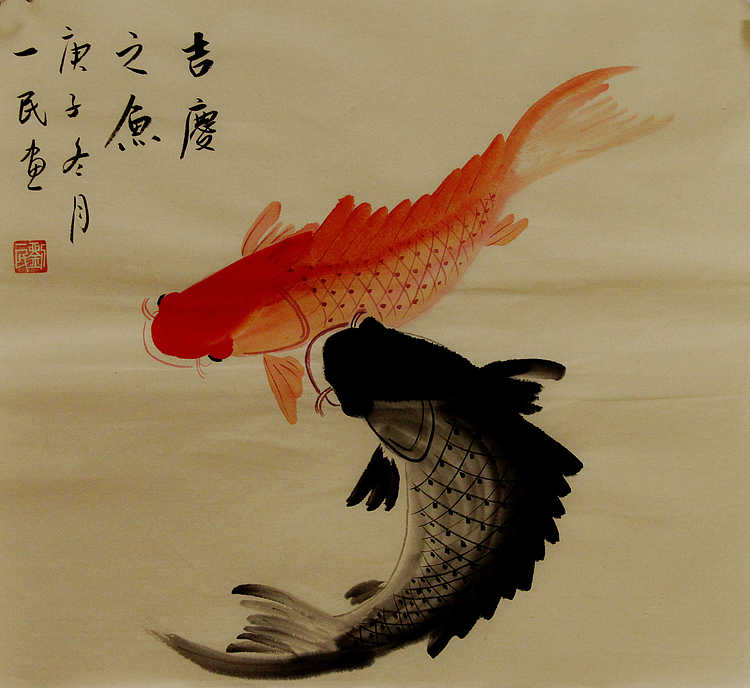 吉慶
之魚
庚子冬月
一民画